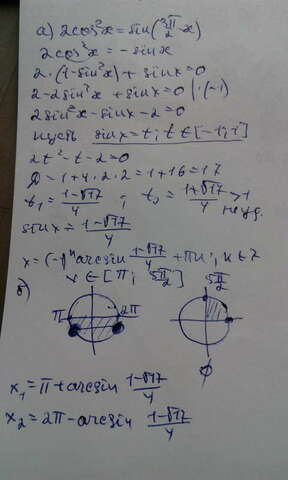 а) 2cos²x = sin(3π/2 - x)
2cos²x = -sinx
2·(1-sin²x) + sinx = 0
2-2sin²x + sinx = 0 |·(-1)
2sin²x - sinx - 2 = 0
пусть sinx = t, t ∈ [-1; 1]
2t² - t - 2 = 0
D = 1+4·2·2 = 1+16 = 17
t₁ = (1-√17)/4 ; t₂ = (1+√17)/4 > 1
неуд.
sinx = (1-√17)/4
x = (-1)ⁿ arcsin (1-√17)/4 + πn, n ∈ Z
б) x ∈ [π; 5π/2]
π 2π 5π/2
∅
x₁ = π + arcsin (1-√17)/4
x₂ = 2π - arcsin (1-√17)/4